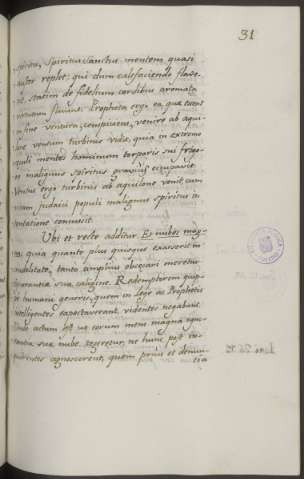 31
spirita, Spiritus Sanctus mentem quasi
auster replet: qui dum calefaciendo flave-
rit, statim de fidelium cordibus aromata
virtutum fluunt. Propheta ergo ea, quæ erant
in fine ventura, conspiciens, venire ab aqui-
lone ventum turbinis vidit, quia in extremo
sæculi mentes hominum torporis sui frigo-
re malignus spiritus occupavit.
Ventus ergo turbinis ab aquilone venit, cum
judaici populi malignus spiritus in
tentatione commovit.
Ubi et recte additur. Et nubes mag-
na; quia quanto plus quisque exasserit in
crudelitate, tanto amplius obscurari meretur
ignorantiæ suæ caligine. Redemptorem quip-
pe humani generis, quem in lege ac Prophetis
intelligentes expectaverant, videntes negabant.
Unde actum est ut eorum mentem magna igno-
rantiæ suæ nube tegeretur, ne hunc post in-
agnoscerent, quem prius et denun-
cia